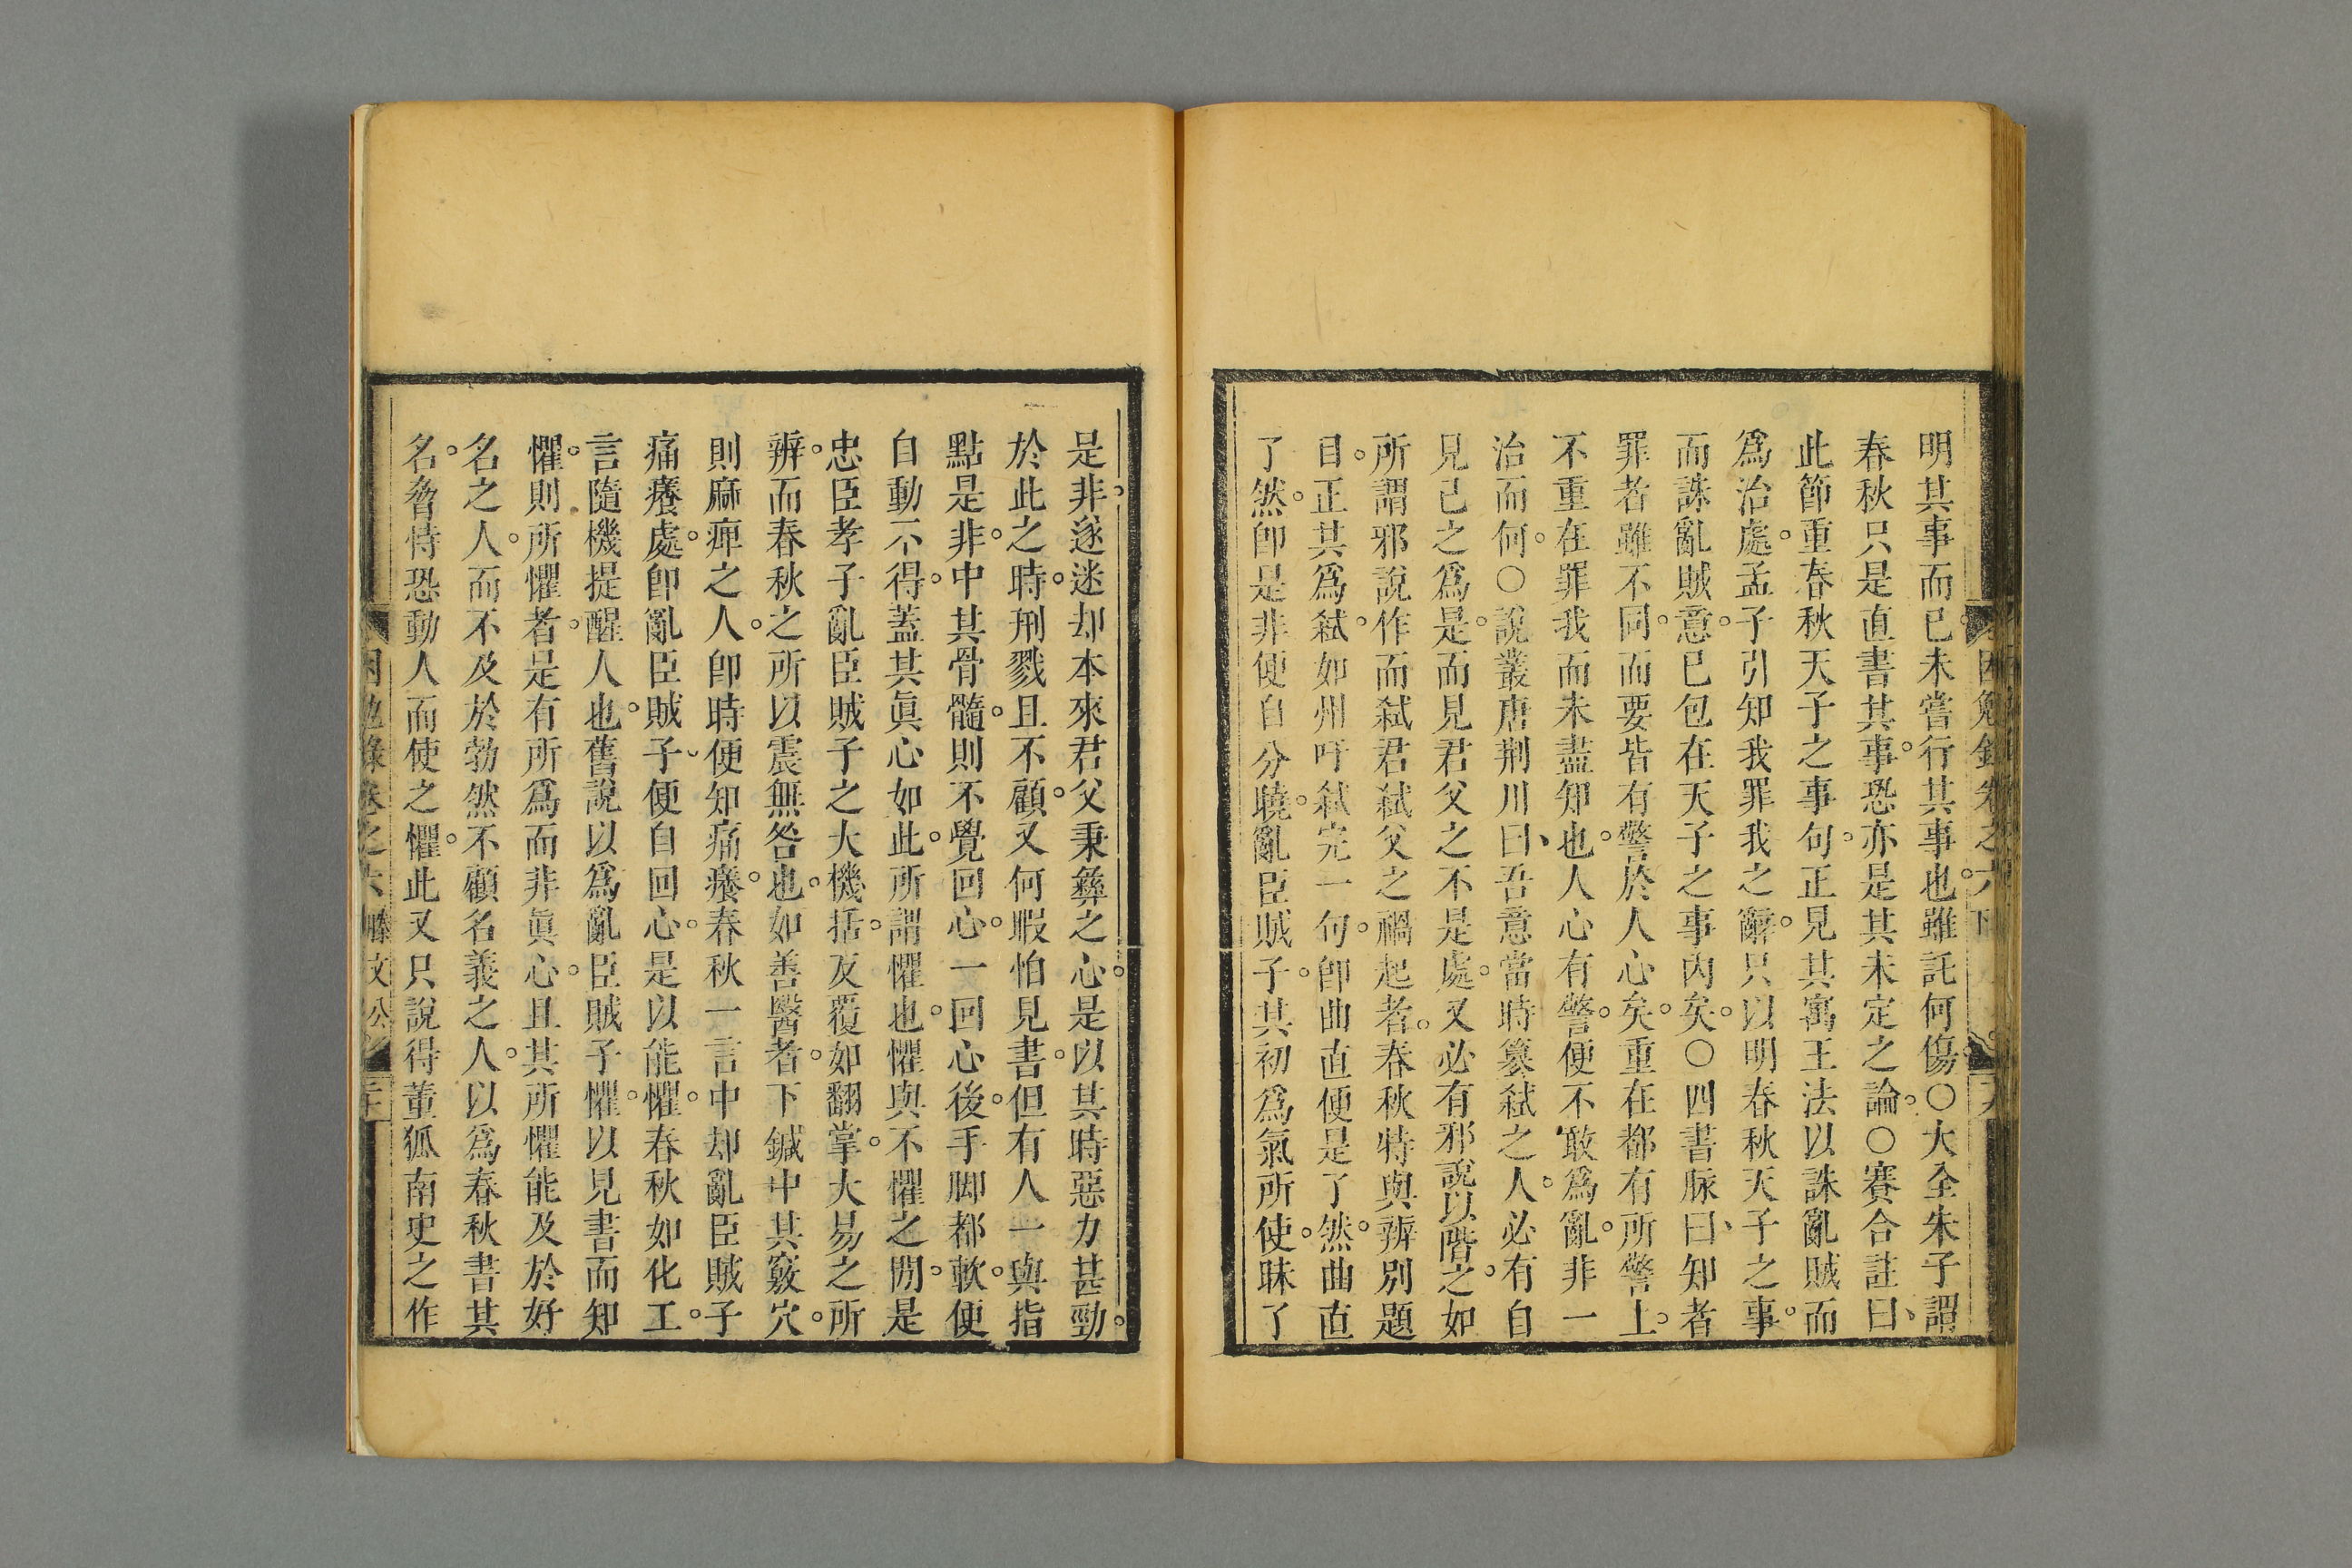 明其事而已未嘗行其事也。雖託何傷。○大全朱子謂
春秋只是直書其事。恐亦是其未定之論。○賽合註曰、
此節重春秋天子之事句。正見其寓王法以誅亂賊而
爲治處。孟子引知我罪我之辭。只以明春秋天子之事。
而誅亂賊意。已包在天子之事內矣。○四書脉曰、知者
罪者雖不同。而要皆有警於人心矣。重在都有所警上。
不重在罪我而未盡知也。人心有警。便不敢爲亂。非一
治而何。○說叢唐荆川曰、吾意當時篡弑之人。必有自
見己之爲是。而見君父之不是處。又必有邪說以階之。如
所謂邪說作而弑君弑父之禍起者。春秋特與辨別題
目。正其爲弑。如州吁弑完一句。卽曲直便是了然。曲直
了然。卽是非便自分曉。亂臣賊子。其初爲氣所使。昧了
是非。遂迷却本來君父秉彝之心。是以其時惡力甚勁。
於此之時。刑戮且不顧。又何暇怕見書。但有人一與指
點是非。中其骨髓。則不覺回心。一回心後。手脚都軟。便
自動不得。蓋其眞心如此。所謂懼也。懼與不懼之閒。是
忠臣孝子亂臣賊子之大機括。反覆如翻掌。大易之所
辨。而春秋之所以震無咎也。如善醫者。下鍼中其竅穴。
則麻痺之人。卽時便知痛癢。春秋一言中却亂臣賊子
痛癢處。卽亂臣賊子、便自回心。是以能懼。春秋如化工。
言隨機提醒人也。舊說以爲亂臣賊子懼。以見書而知
懼。則所懼者。是有所爲而非眞心。且其所懼能及於好
名之人。而不及於勃然不顧名義之人。以爲春秋書其
名。脅恃恐動人而使之懼。此又只說得董狐南史之作